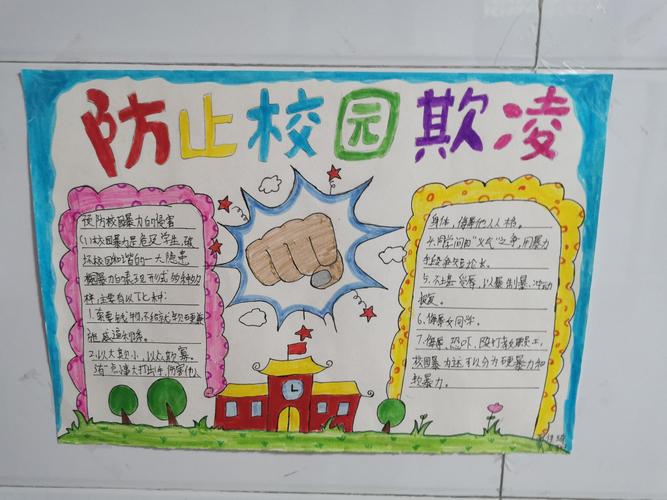 防止校园欺凌
预防校园暴力的侵害
(1)校园暴力是危及学生,破
坏校园和谐的一大隐患
暴力的表现形式多种
样,主要有以下几种:
1.索要钱物,不给就
威逼利诱。
2.以大欺小,以众欺寡,
事大打出手,伤害他人
身体,侮辱他人人格。
4.同学间因"义气"之争,用暴力
手段争短论长。
5.不堪受辱,以暴制暴,冲动
报复。
6.侮辱女同学。
7.侮辱、恐吓、殴打教职工,
校园暴力还可以分为硬暴力和
软暴力。